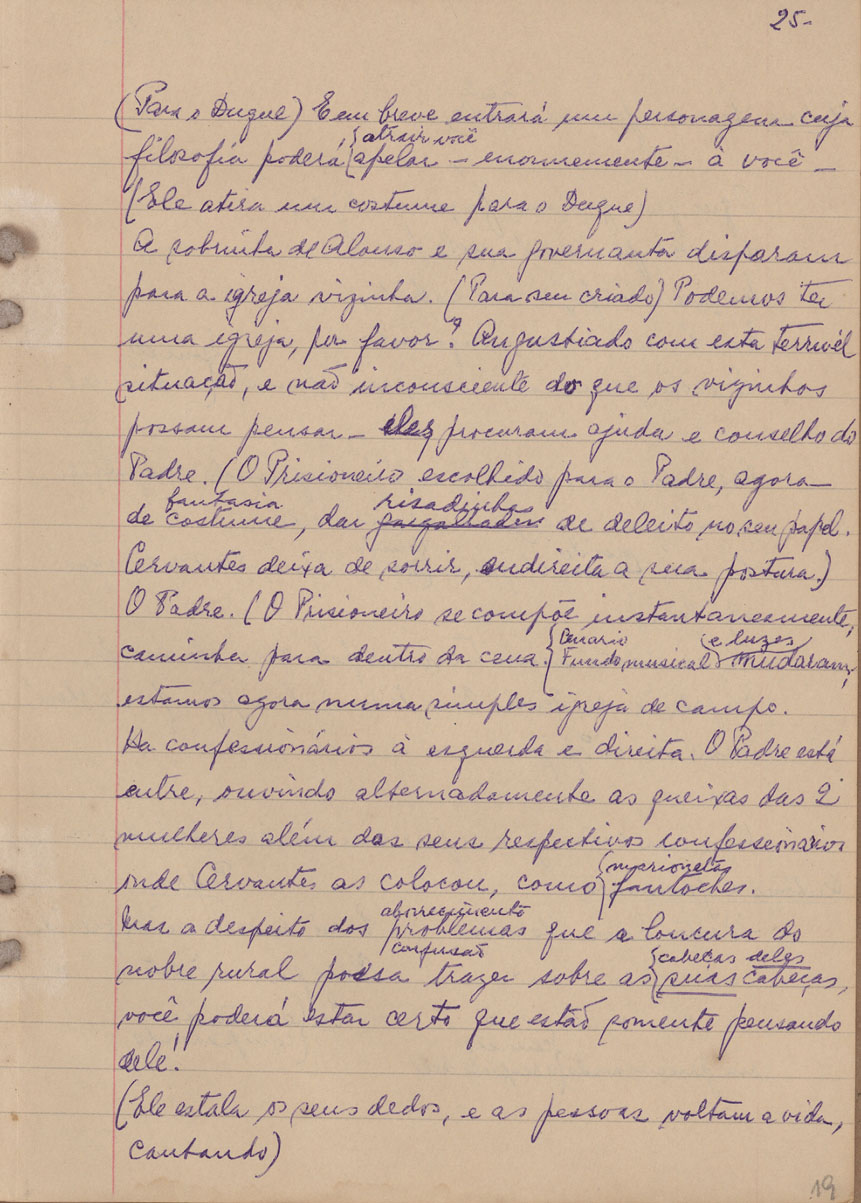 25-
(Para o Duque) E em breve entrará um personagem cuja
atrair você
filosofia poderá { apelar - enormemente - à você -
(Ele atira um costume para o Duque)
A sobrinha de Alonso e sua governanta disparam
para a igreja vizinha. (Para seu criado) Podemos ter
uma igreja, por favor? Angustiado com esta terrivel
situação, e não inconsciente do que os vizinhos
possam pensar - eles procuram ajuda e conselho do
Padre. (O Prisioneiro escolhido para o Padre, agora
fantasia risadinhas
de costume, dar gargalhadas de deleito no seu papel.
Cervantes deixa de sorrir, endireita a sua postura.)
O Padre. (O Prisioneiro se compõe instantaneamente,
{ Cenario (e luzes
caminha para dentro da cena. Fundo musical) mudaram,
estamos agora numa simples igreja de campo.
Ha confessionários à esquerda e direita. O Padre está
entre, ouvindo alternadamente as queixas das 2
mulheres além dos seus respectivos confessionários
{ marionetas
onde Cervantes as colocou, como fantoches.
aborrecimento
Mas a despeito dos problemas que a loucura do
confusão { cabeças deles
nobre rural possa trazer sobre as suas cabeças,
você poderá estar certo que estão somente pensando
dele!
(Ele estala os seus dedos, e as pessoas voltam a vida,
cantando)
19